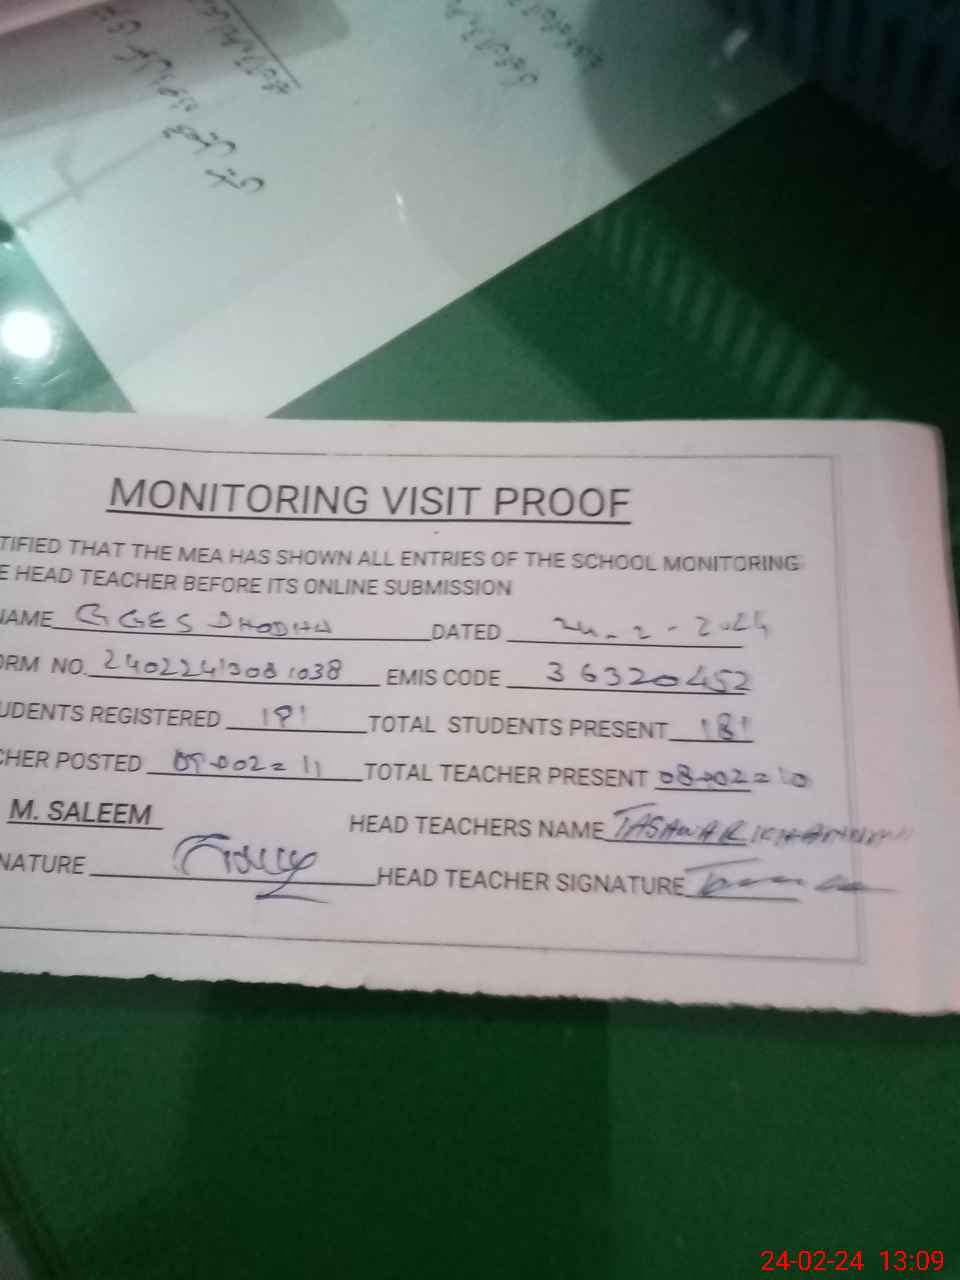 MONITORING VISIT PROOF
TIFIED THAT THE MEA HAS SHOWN ALL ENTRIES OF THE SCHOOL MONITORING
E HEAD TEACHER BEFORE ITS ONLINE SUBMISSION
NAME GGES DHODHA DATED 24-2-2024
ORM NO. 24022413081038 EMIS CODE 36320452
UDENTS REGISTERED 191 TOTAL STUDENTS PRESENT 181
CHER POSTED 09+02=11 TOTAL TEACHER PRESENT 08+02=10
M. SALEEM HEAD TEACHERS NAME TASAWAR
NATURE HEAD TEACHER SIGNATURE
24-02-24 13:09